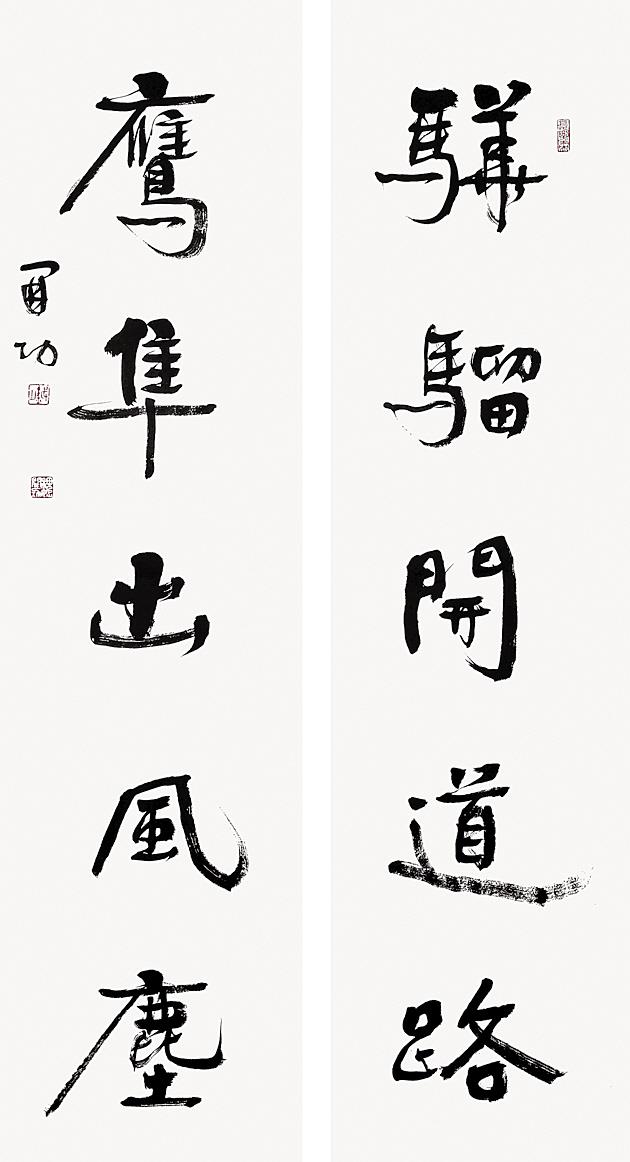 驊騮開道路
鷹隼出風塵
功